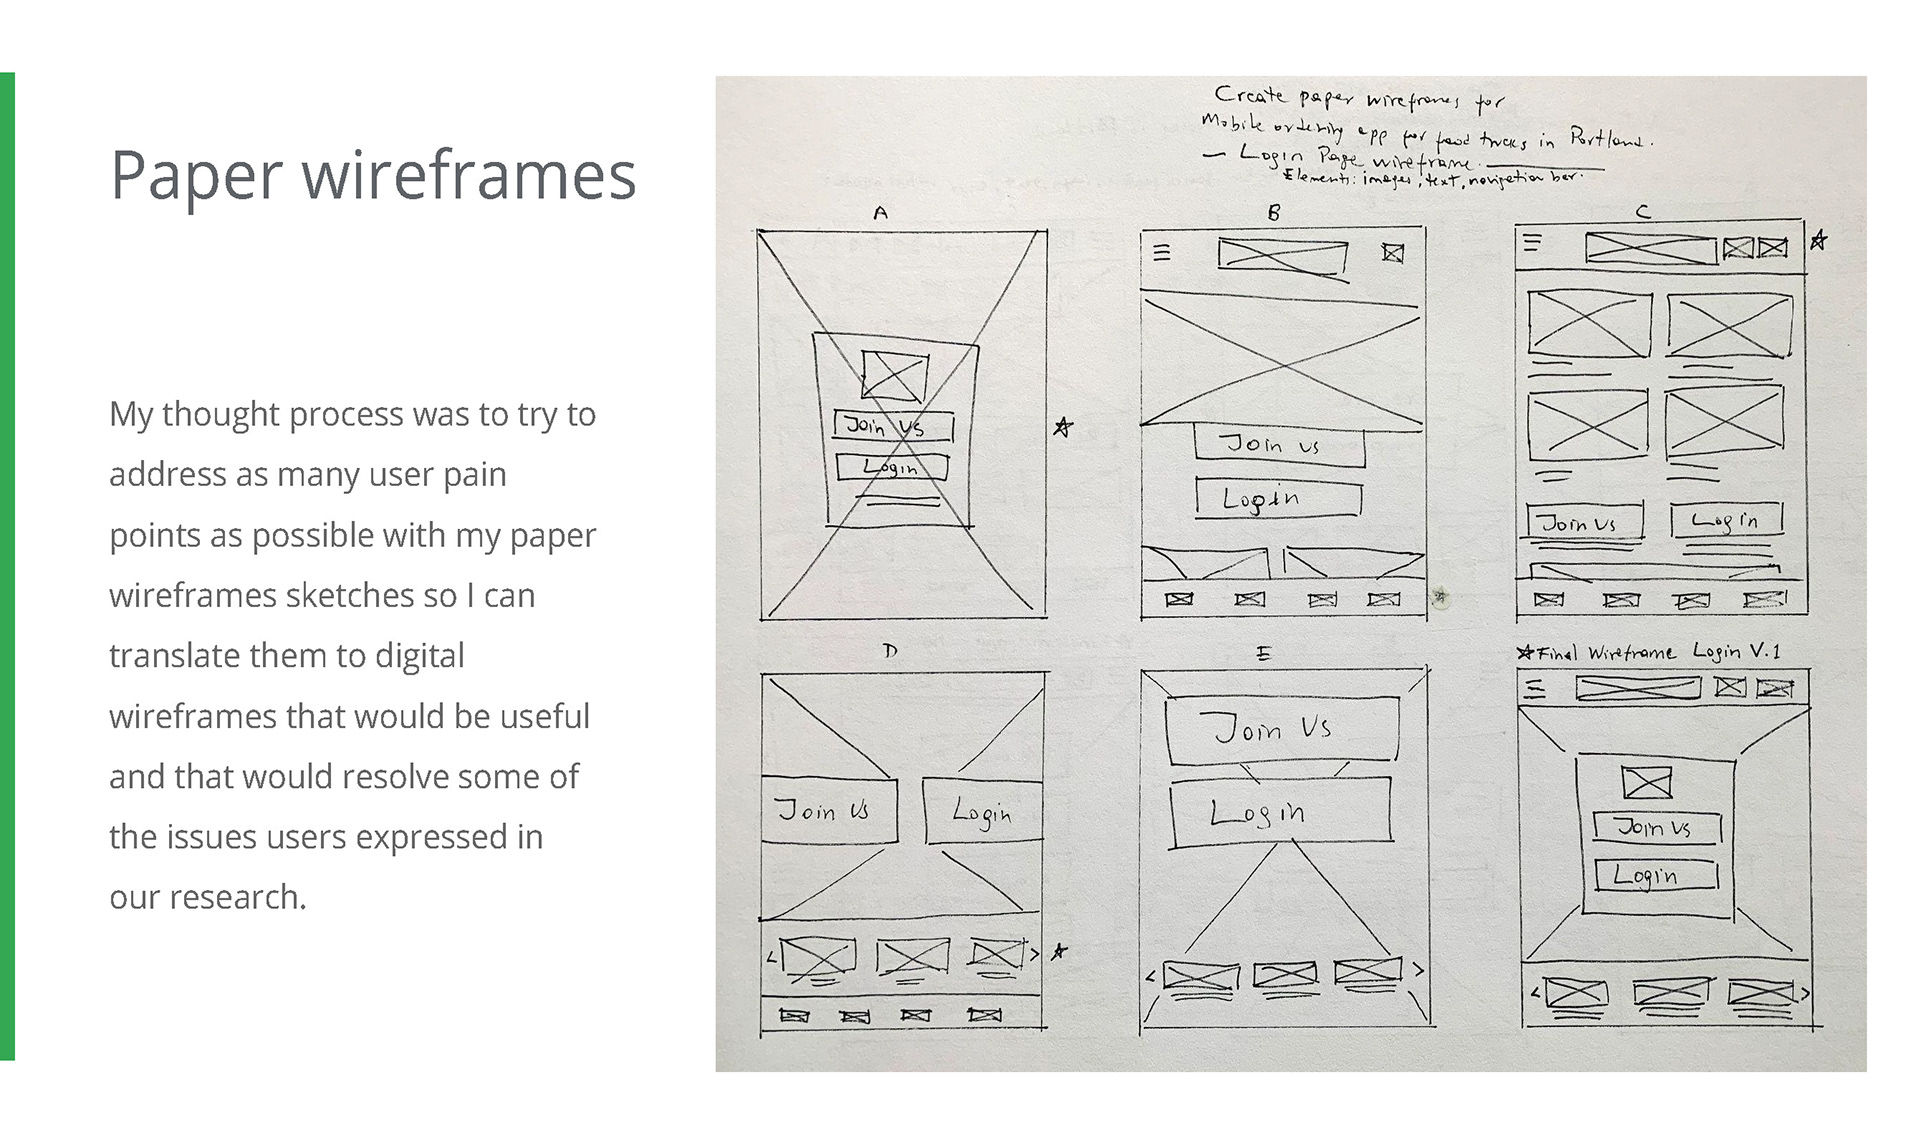 Paper wireframes
My thought process was to try to
address as many user pain
points as possible with my paper
wireframes sketches so I can
translate them to digital
wireframes that would be useful
and that would resolve some of
the issues users expressed in
our research.
Create paper wireframes for
Mobile ordering app for food trucks in Portland.
— Login Page wireframe.
Elements: images, text, navigation bar.
A
B
C
Join Us
Login
Join us
Login
Join us
Login
D
E
Final Wireframe Login V.1
Join Us
Login
Join Us
Login
Join us
Login